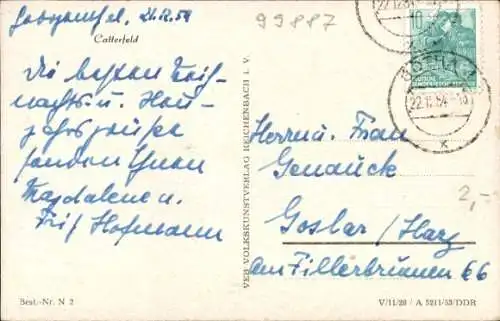 21.12.54
99887
Catterfeld
Die besten Weih-
nachts u. Neu-
jahrsgrüße
senden Ihnen
Magdalene u.
Fritz Hofmann
VEB VOLKSKUNSTVERLAG REICHENBACH I. V.
22.12.54
Herrn u. Frau
Genauck
Goslar / Harz
Am Fillerbrunnen 66
2,-
Best.-Nr. N 2
V/11/28 / A 5211/53/DDR